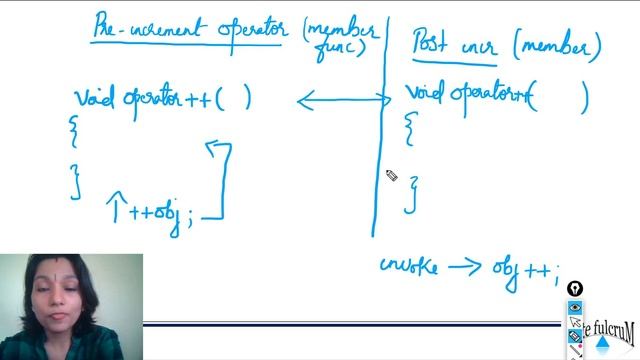 Pre-increment operator (member func)
void operator++( )
{
}
++obj;
Post incr (member)
void operator++( )
{
}
invoke → obj ++;
te fulcruM